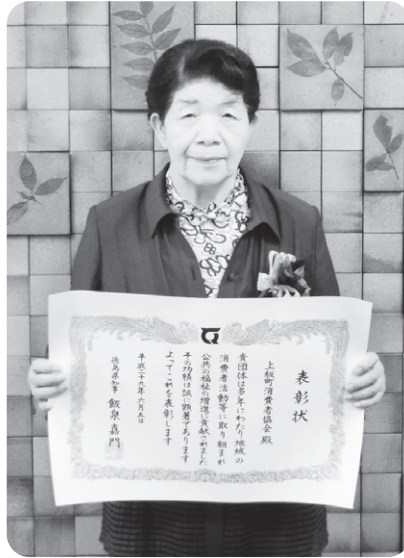 表彰状
上板町消費者協会 殿
貴団体は多年にわたり地域の
消費者活動等に取り組まれ
公共の福祉の増進に貢献されました
その功績は誠に顕著であります
よってこれを表彰します
平成二十九年六月五日
徳島県知事 飯泉嘉門